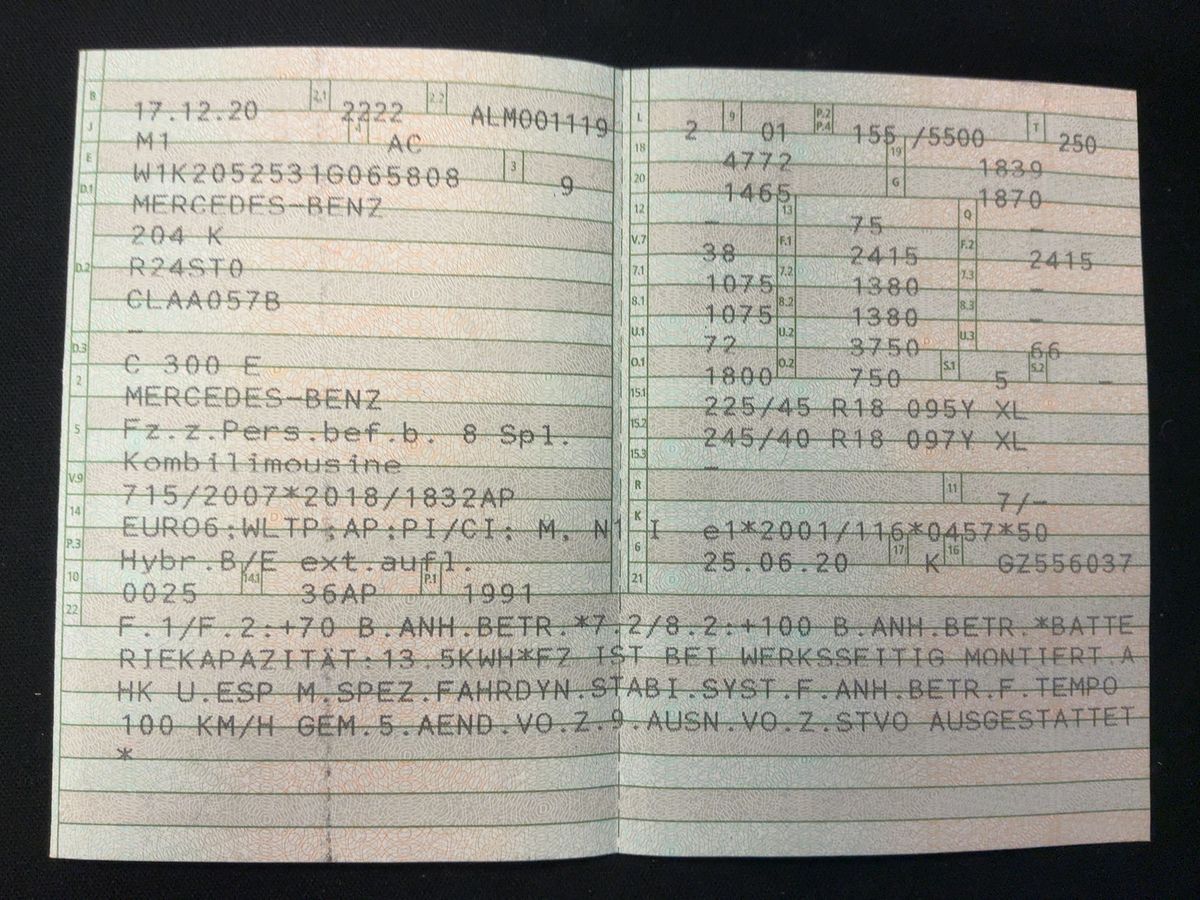 B 17.12.20 2.1 2222 2.2 ALM001119
J M1 4 AC
E W1K2052531G065808 3 9
D.1 MERCEDES-BENZ
204 K
D.2 R24ST0
CLAA057B
–
D.3 C 300 E
2 MERCEDES-BENZ
5 Fz.z.Pers.bef.b. 8 Spl.
Kombilimousine
V.9 715/2007*2018/1832AP
14 EURO6;WLTP;AP;PI/CI; M, N1 I
P.3 Hybr.B/E ext.aufl.
10 0025 14.1 36AP P.1 1991
L 2 9 01 P.2 P.4 155 /5500 T 250
18 4772 19 1839
20 1465 G 1870
12 – 13 75 Q –
V.7 38 F.1 2415 F.2 2415
7.1 1075 7.2 1380 7.3 –
8.1 1075 8.2 1380 8.3 –
U.1 72 U.2 3750 U.3 66
O.1 1800 O.2 750 S.1 5 S.2 –
15.1 225/45 R18 095Y XL
15.2 245/40 R18 097Y XL
15.3 –
R 11 7/–
K e1*2001/116*0457*50
6 25.06.20 17 K 16 GZ556037
21
22 F.1/F.2:+70 B.ANH.BETR.*7.2/8.2:+100 B.ANH.BETR.*BATTE
RIEKAPAZITÄT:13.5KWH*FZ IST BEI WERKSSEITIG MONTIERT.A
HK U.ESP M.SPEZ.FAHRDYN.STABI.SYST.F.ANH.BETR.F.TEMPO
100 KM/H GEM.5.AEND.VO.Z.9.AUSN.VO.Z.STVO AUSGESTATTET
*